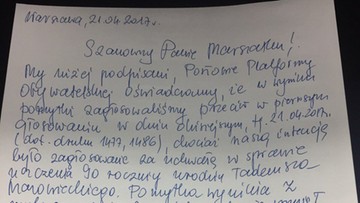 Warszawa, 21.04.2017r.
Szanowny Panie Marszałku!
My niżej podpisani, Posłowie Platformy
Obywatelskiej oświadczamy, że w wyniku
pomyłki zagłosowaliśmy przeciw w pierwszym
głosowaniu w dniu dzisiejszym, tj. 21.04.2017r.
(dot. druku 1477, 1486), chociaż naszą intencją
było zagłosowanie za uchwałą w sprawie
uczczenia 90 rocznicy urodzin Tadeusza
Mazowieckiego. Pomyłka wynikła z